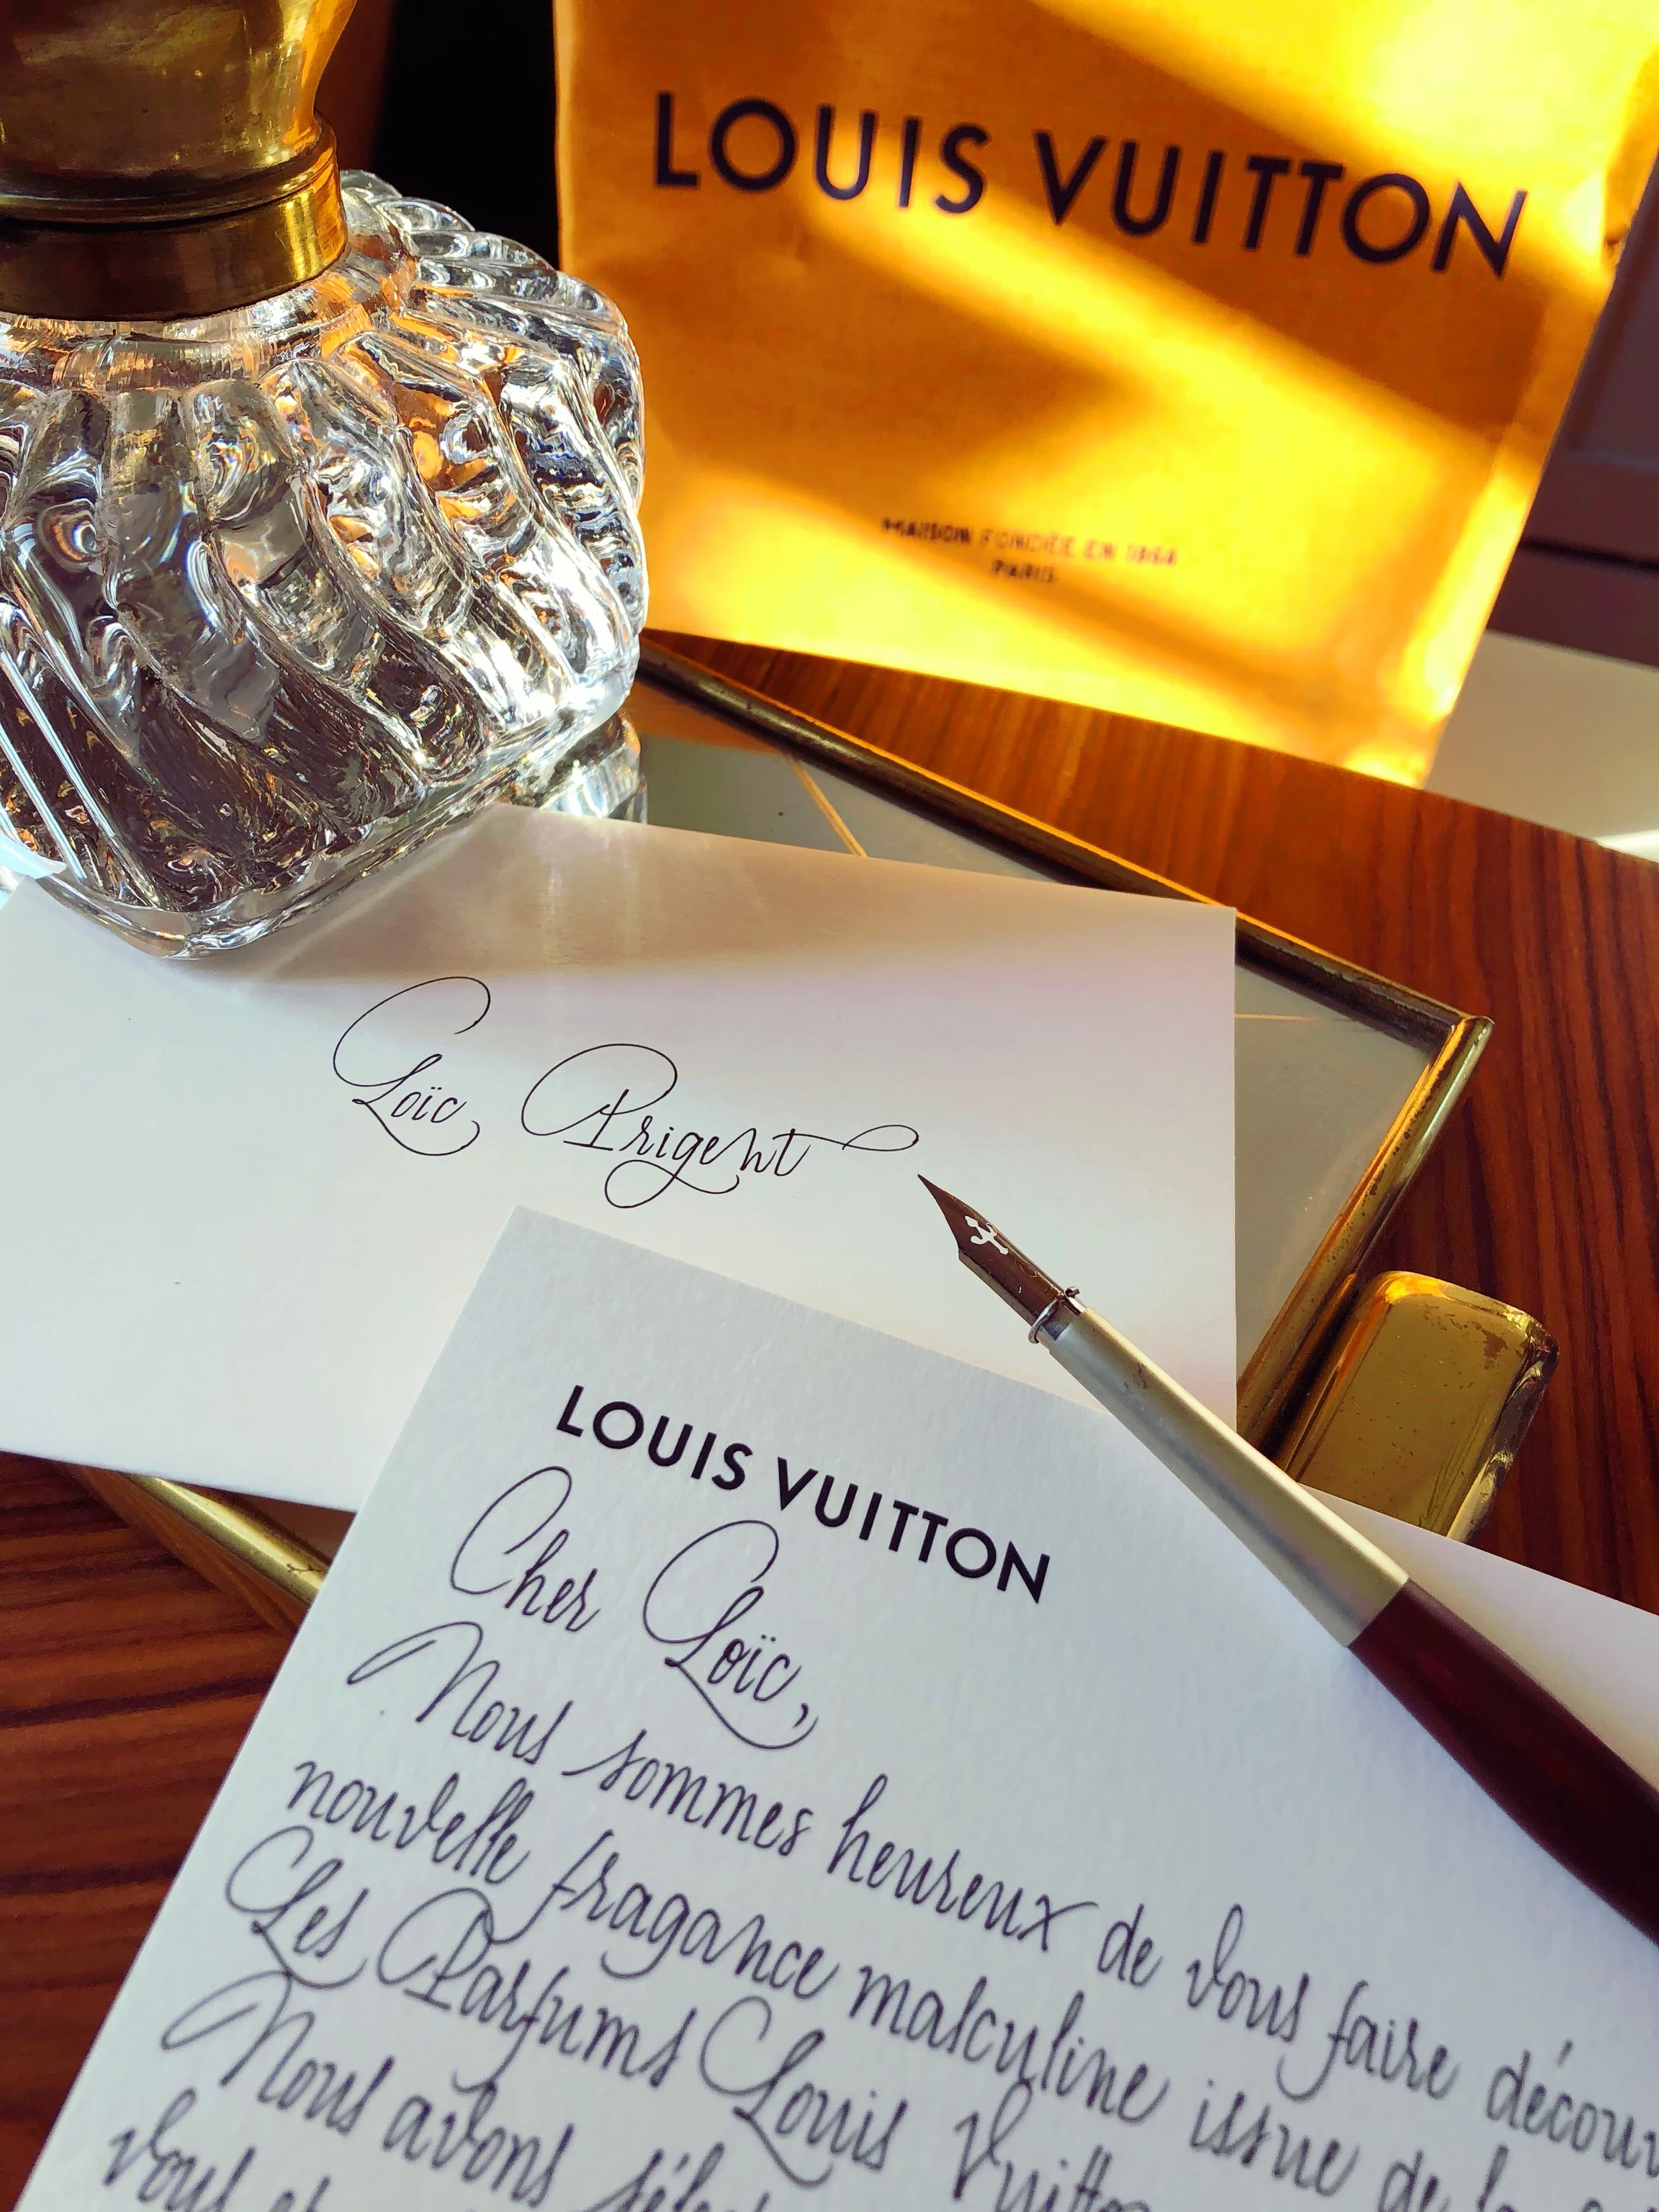 LOUIS VUITTON
MAISON FONDÉE EN 1854
PARIS
Loïc Prigent
LOUIS VUITTON
Cher Loïc,
Nous sommes heureux de vous faire décou
nouvelle fragance masculine issue de la
Les Parfums Louis Vuitto
Nous avons
vous